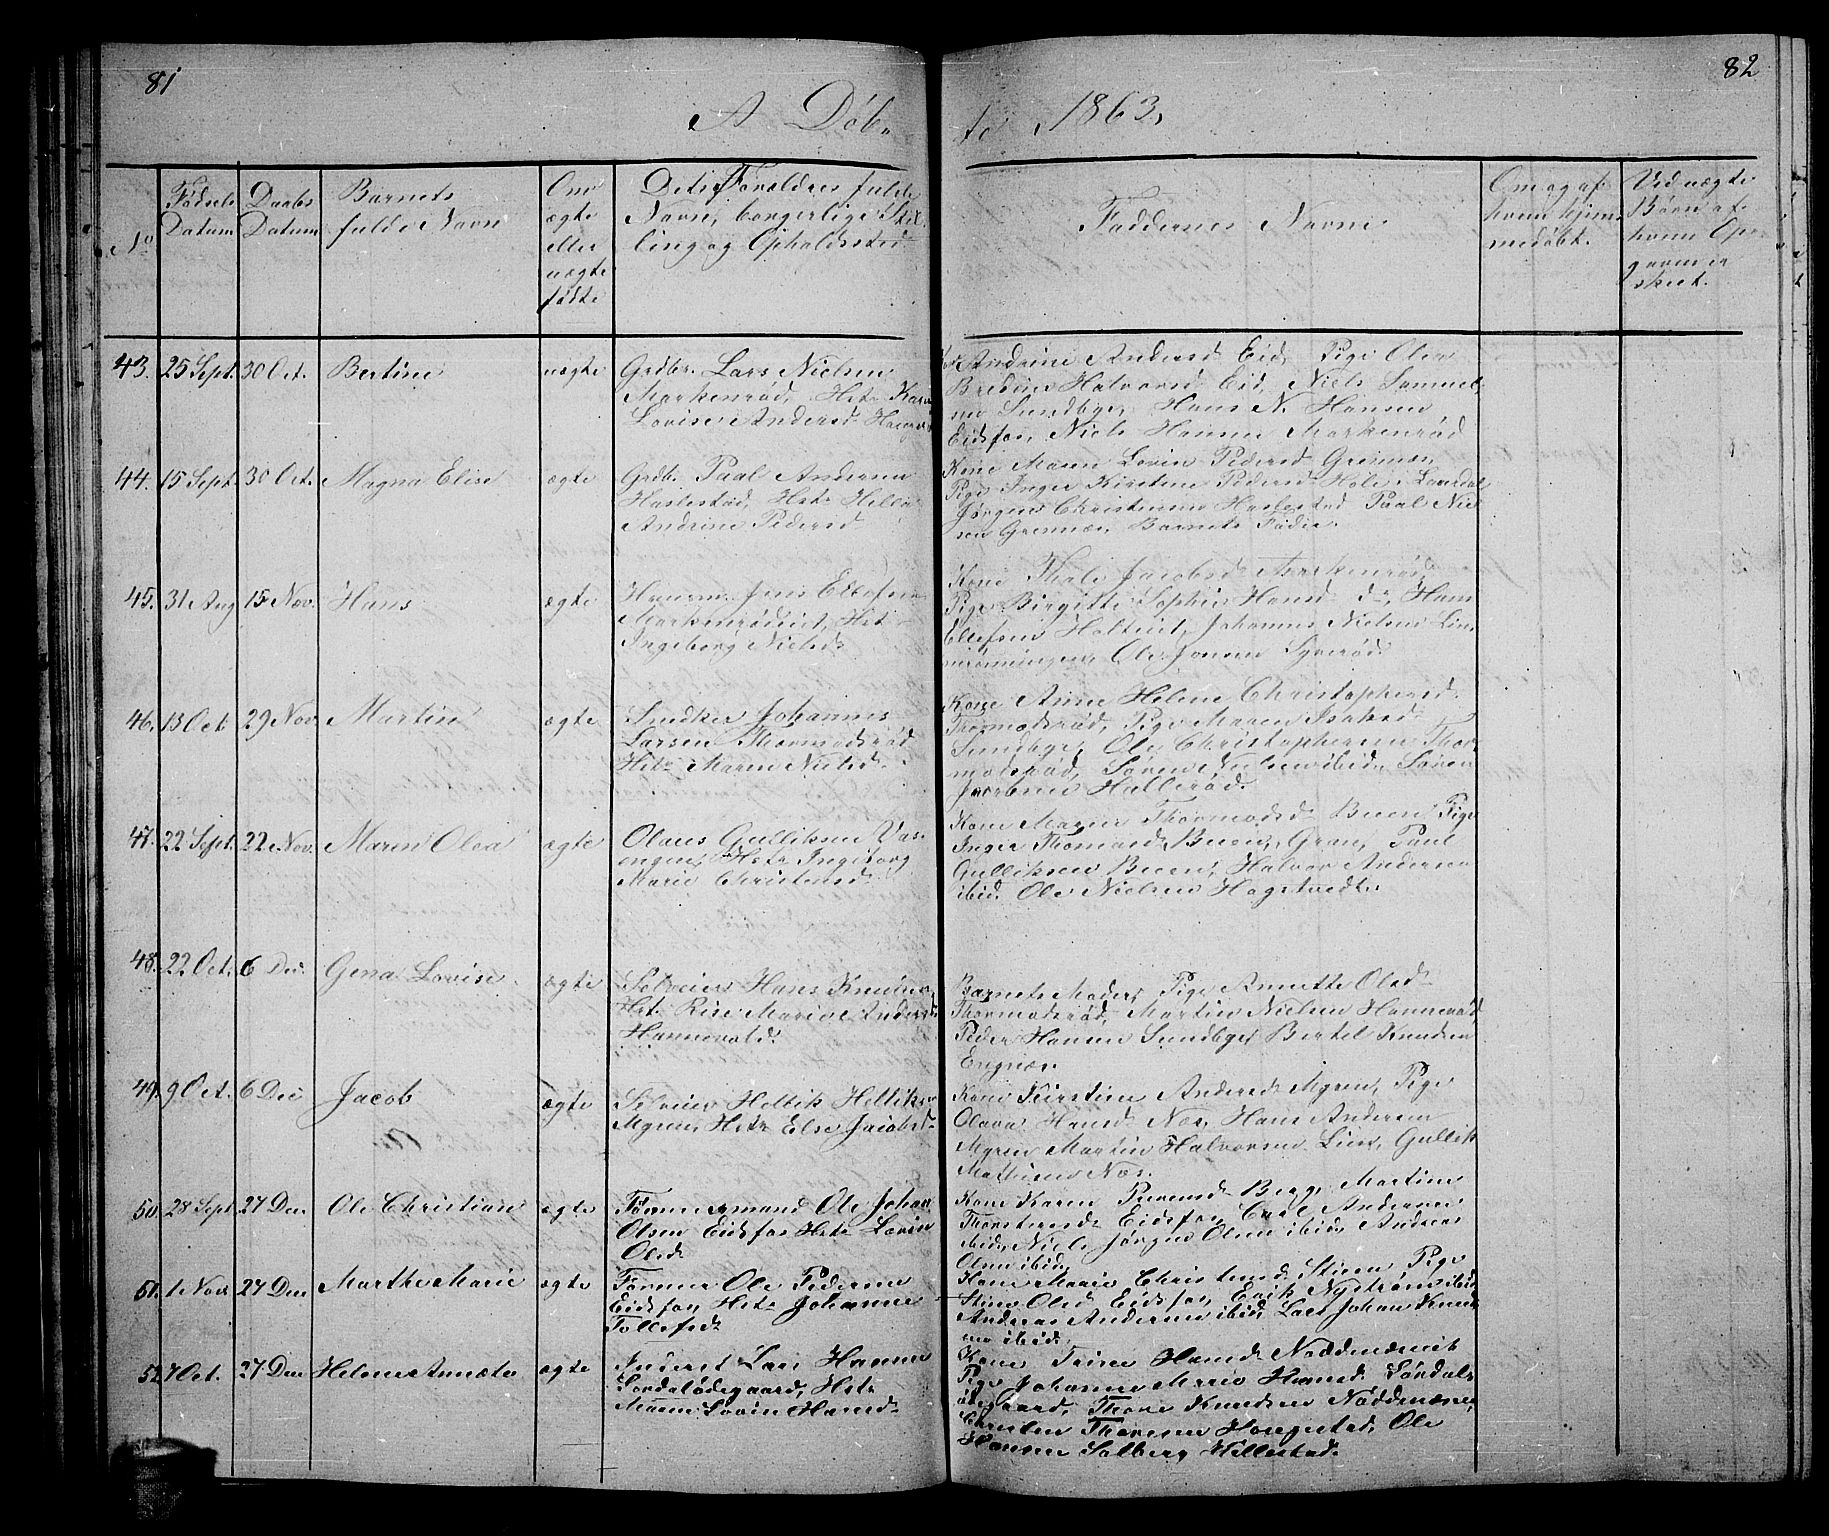 81
82
A Døb„
te 1863,
No
Fødsels Datum
Daabs Datum
Barnets fulde Navn
Om ægte eller uægte fødte
Forældres fulde Navn, borgerlige Stilling og Opholdssted
Faddernes Navne
Om og af hvem hjemmedøbt.
Ved uægte Børn af hvem Opgaven er skeet.
43. 25 Sept. 30 Oct. Bertine uægte Grdbr. Lars Nielsen
Markenrød,
Lovise Andersd
Andrine Andersd Eid, Pige Olea
Halvorsd Eid, Niels Samuel
sen Sundbye, Hans N. Hansen
Eidsfos, Niels Hansen Markenrød
44. 15 Sept. 30 Oct. Magna Elise ægte Grdbr. Paal Andersen
Haslestad, Hstr Helle
Andrine Pedersd
Kone Maren Lovise Pedersd Grennæs,
Pige Inger Kirstine Pedersd
Jørgen Christensen Haslestad Paal Niel
sen Grennæs, Barnets Fader.
45. 31 Aug 15 Nov. Hans ægte Huusm. Jens Ellefsen
Markenrødeiet, Hstr
Ingeborg Nielsd
Kone Thale Jacobsd
Pige Birgitte Sophie Hansd do, Hans
Ellefsen Holteiet, Johannes Nielsen
Ole Jonsen
46. 13 Oct 29 Nov Martin ægte Snedker Johannes
Larsen Thormodsrød
Hstr Maren Nielsd.
Kone Anne Helene Christophersd
Thormodsrød, Pige Maren Isaksd
Sundbye, Ole Christophersen Thor
modsrød, Søren Nielsen ibid, Søren
Jacobsen Hallerød.
47. 22 Sept. 22 Nov. Maren Olea ægte Olaus Gulliksen Vas
engen, Hstr Ingeborg
Marie Christensd
Kone Maren Thormodsd Buen Pige
Inger Thomasd Buen, Gran, Paul
Gulliksen Buen, Halvor Andersen
ibid. Ole Nielsen Hagstvedt.
48. 22 Oct. 6 Dec. Gena Lovise ægte Selveier Hans Knudsen
Hst. Rise Marie Andersd
Hannevold
Barnets Moder, Pige Annette Olsd
Thormodsrød, Martin Nielsen Hannevold,
Peder Hansen Sundbye, Bertel Knudsen
Engnæs.
49. 9 Oct. 6 Dec Jacob ægte Selveier Hellik Helliksen
Myren, Hstr Else Jacobsd
Kone Kirstine Andersd Myren, Pige
Olava Hansd Næs, Hans Andersen
Myren Martin Halvorsen Lien, Gullik
Mathisen Næs.
50. 28 Sept 27 Dec. Ole Christian ægte Tømmermand Ole Johan
Olsen Eidsfos Hstr Lovise
Olsd
Kone Karen Berg, Martine
Thorstensd Eidsfos, Carl Andersen
ibid, Niels Jørgen Olsen ibid, Andreas
Olsen ibid.
51. 1 Nov 27 Dec Marthe Marie ægte Former Ole Pedersen
Eidsfos, Hstr Johanne
Tollefsd
Kone Marie Christensd Stien, Pige
Stine Olsd Eidsfos, Erik Nystrøm ibid
Andreas Andersen ibid, Lars Johan Knud
sen ibid.
52. 7 Oct. 27 Dec Helene Annæta ægte Inderst Lars Hansen
Sørdalsødegaard, Hstr
Maren Lovise Hansd
Kone Trine Hansd Nøddenæseie
Pige Johanne Marie Hansd Sørdals
ødegaard, Thore Knudsen Nøddenæseie,
Christen Thoresen Horgestad, Ole
Hansen Solberg Hillestad.